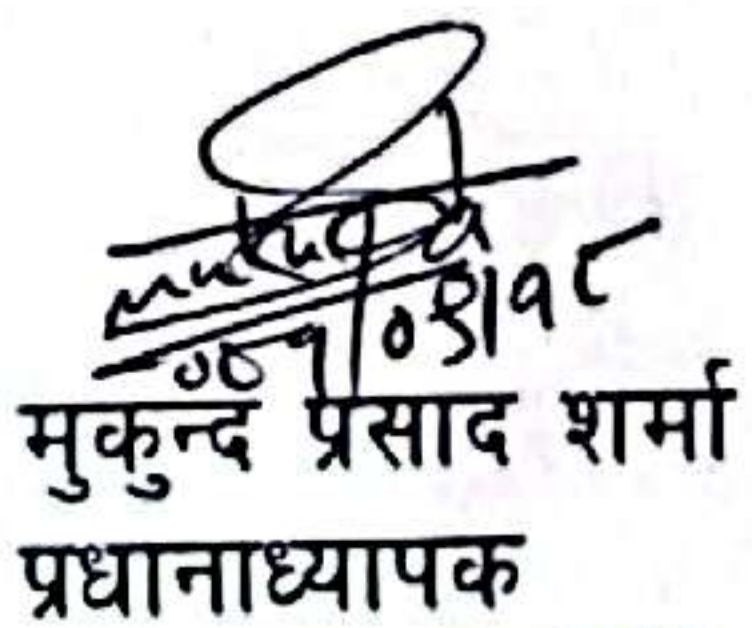 ०८१/०९/१८
मुकुन्द प्रसाद शर्मा
प्रधानाध्यापक